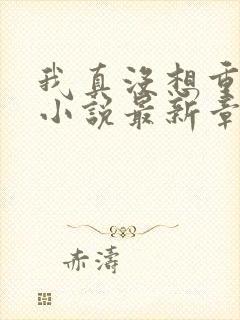 我真没想重
小说最新章
赤涛